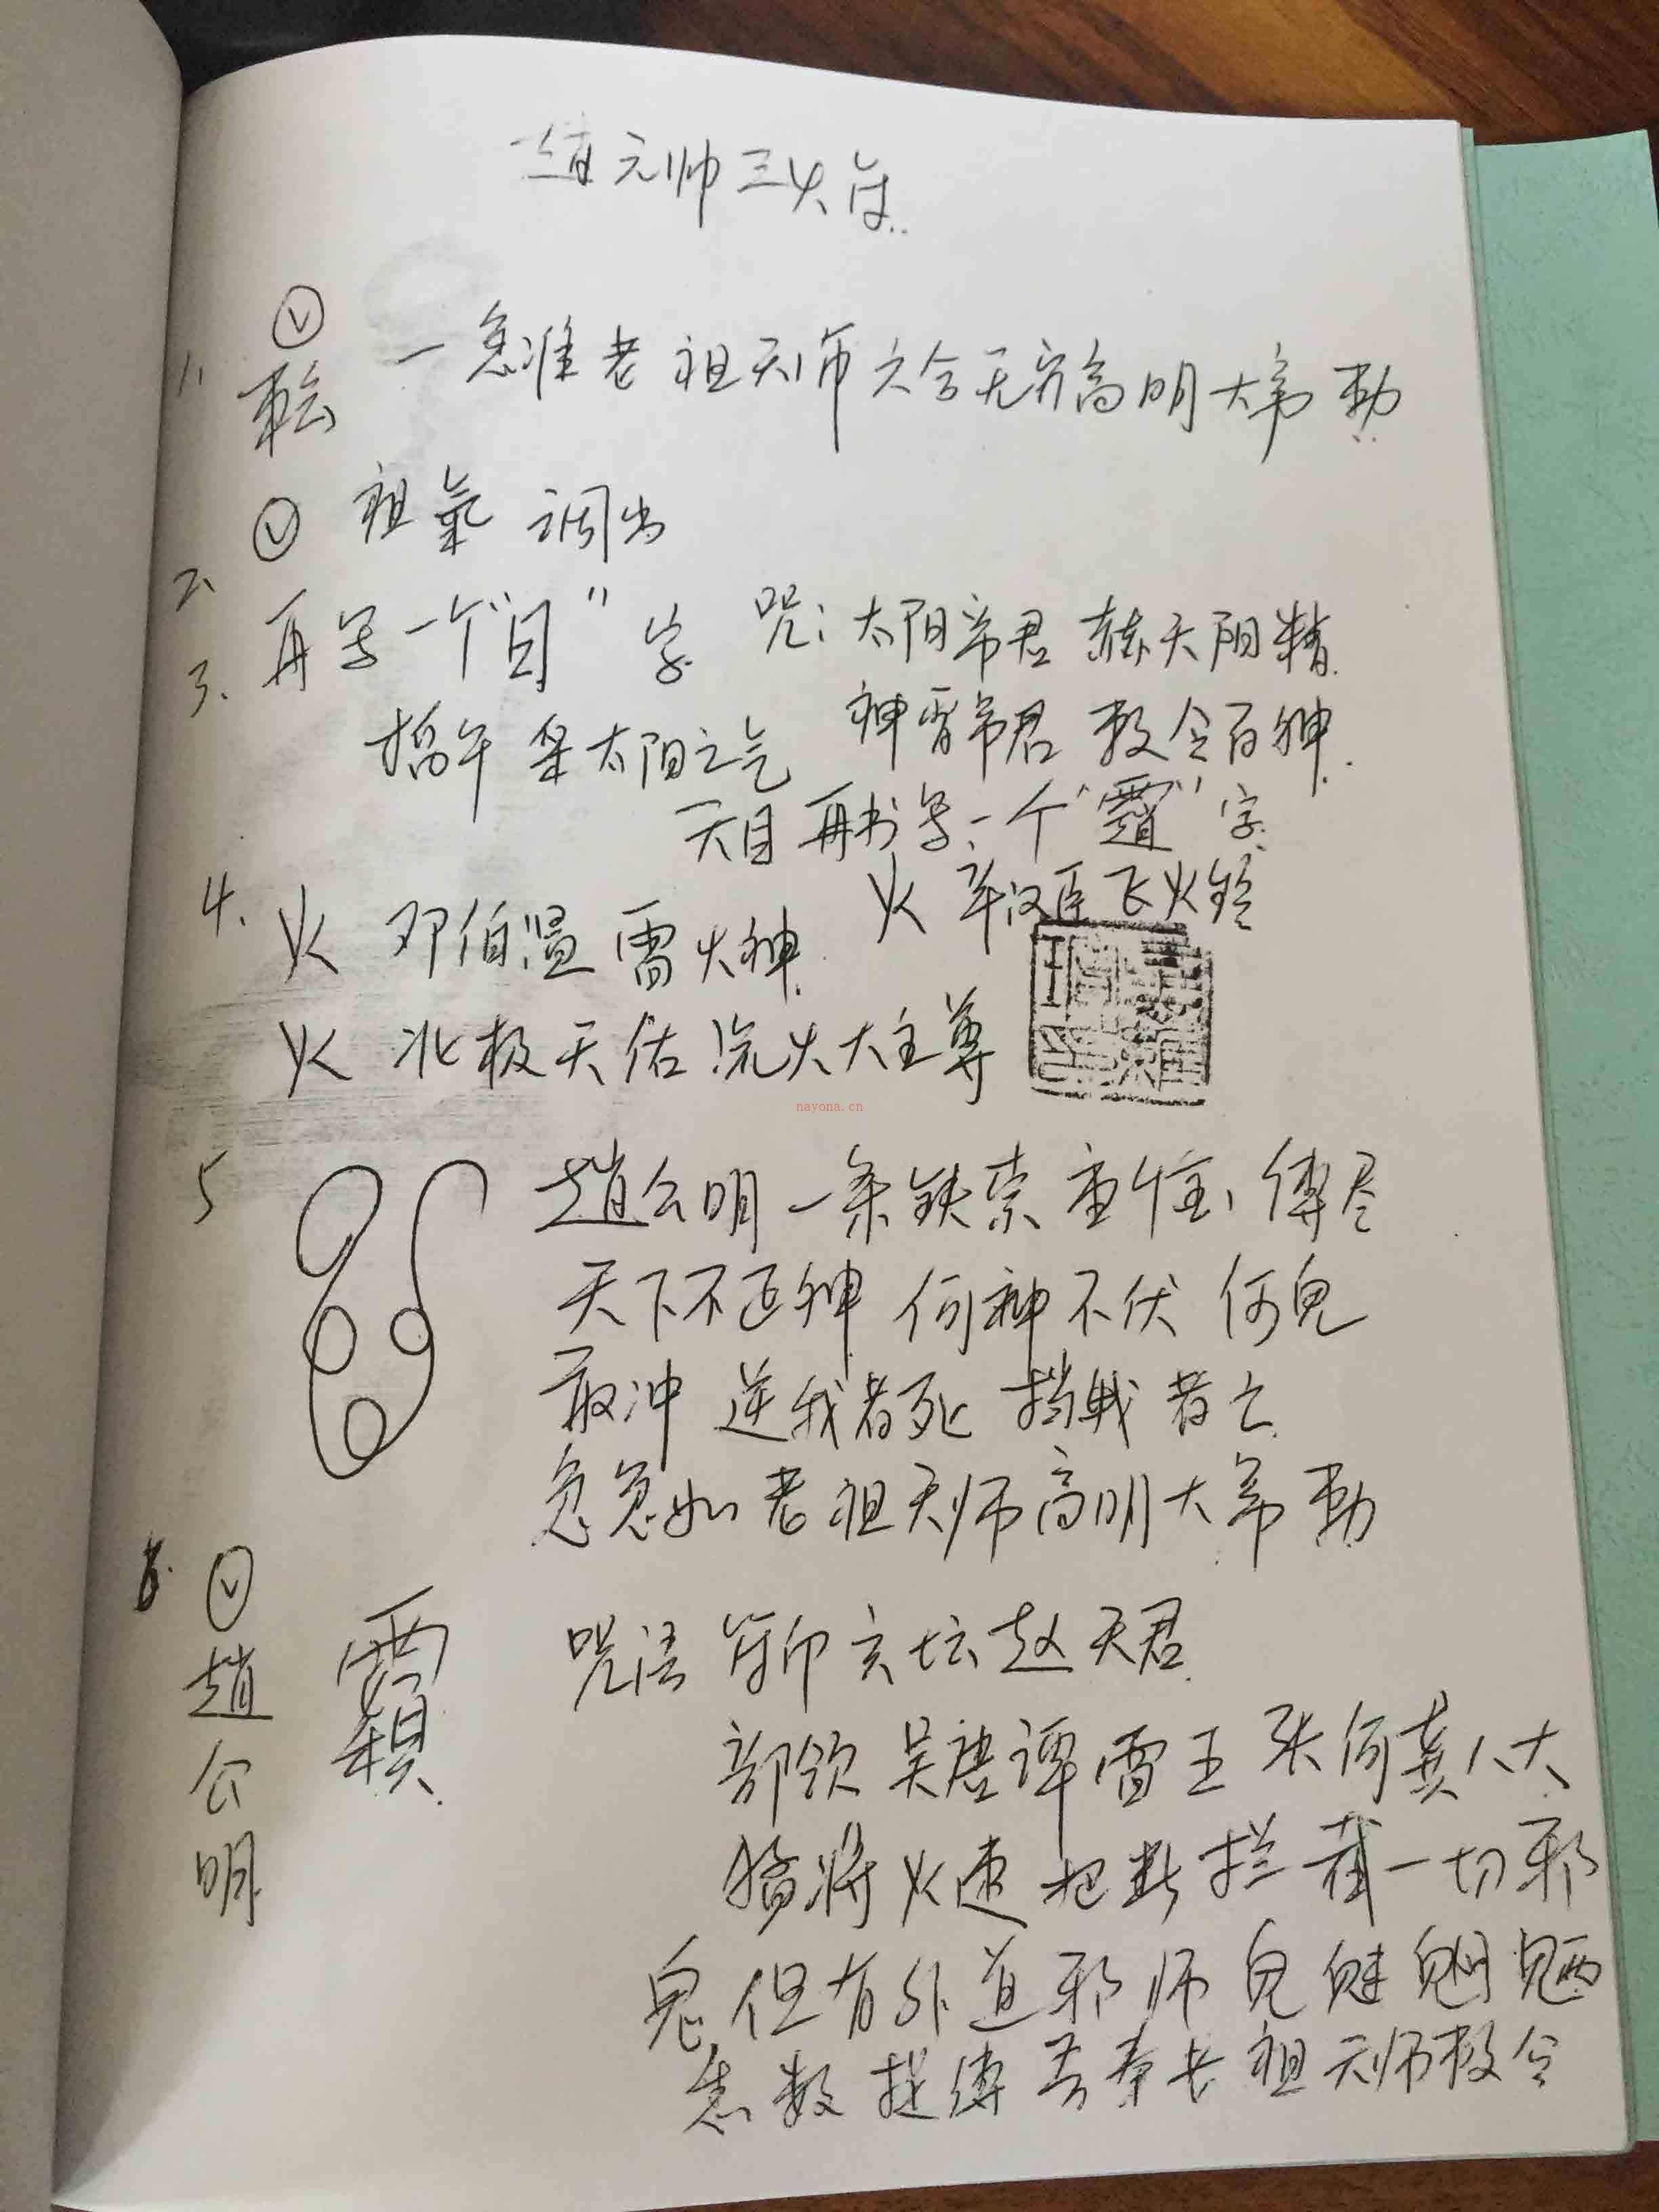 趙元帅三火符
1. 一急准老祖天师六合无穷高明大帝勅
2. 祖氣 调出
3. 再写一个"目"字 咒：太阳帝君 赫天阳精
掐午 采太阳之气 神霄帝君 敕令百神
天目 再书写一个" "字
火 辛汉臣飞火铃
4. 火 邓伯温 雷火神
火 北极天佑 火大主尊
nayona.cn
5 趙公明一条铁索重 缚尽
天下不正神 何神不伏 何鬼
敢冲 逆我者死 挡我者亡
急急如老祖天师高明大帝勅
6. 趙公明
咒语 符印玄坛赵天君
部领 吴唐谭雷王 张何龚八大
猛将火速把断拦截一切邪
鬼但有外道邪师鬼魅魍魉
悉数捉缚吾奉老祖天师敕令